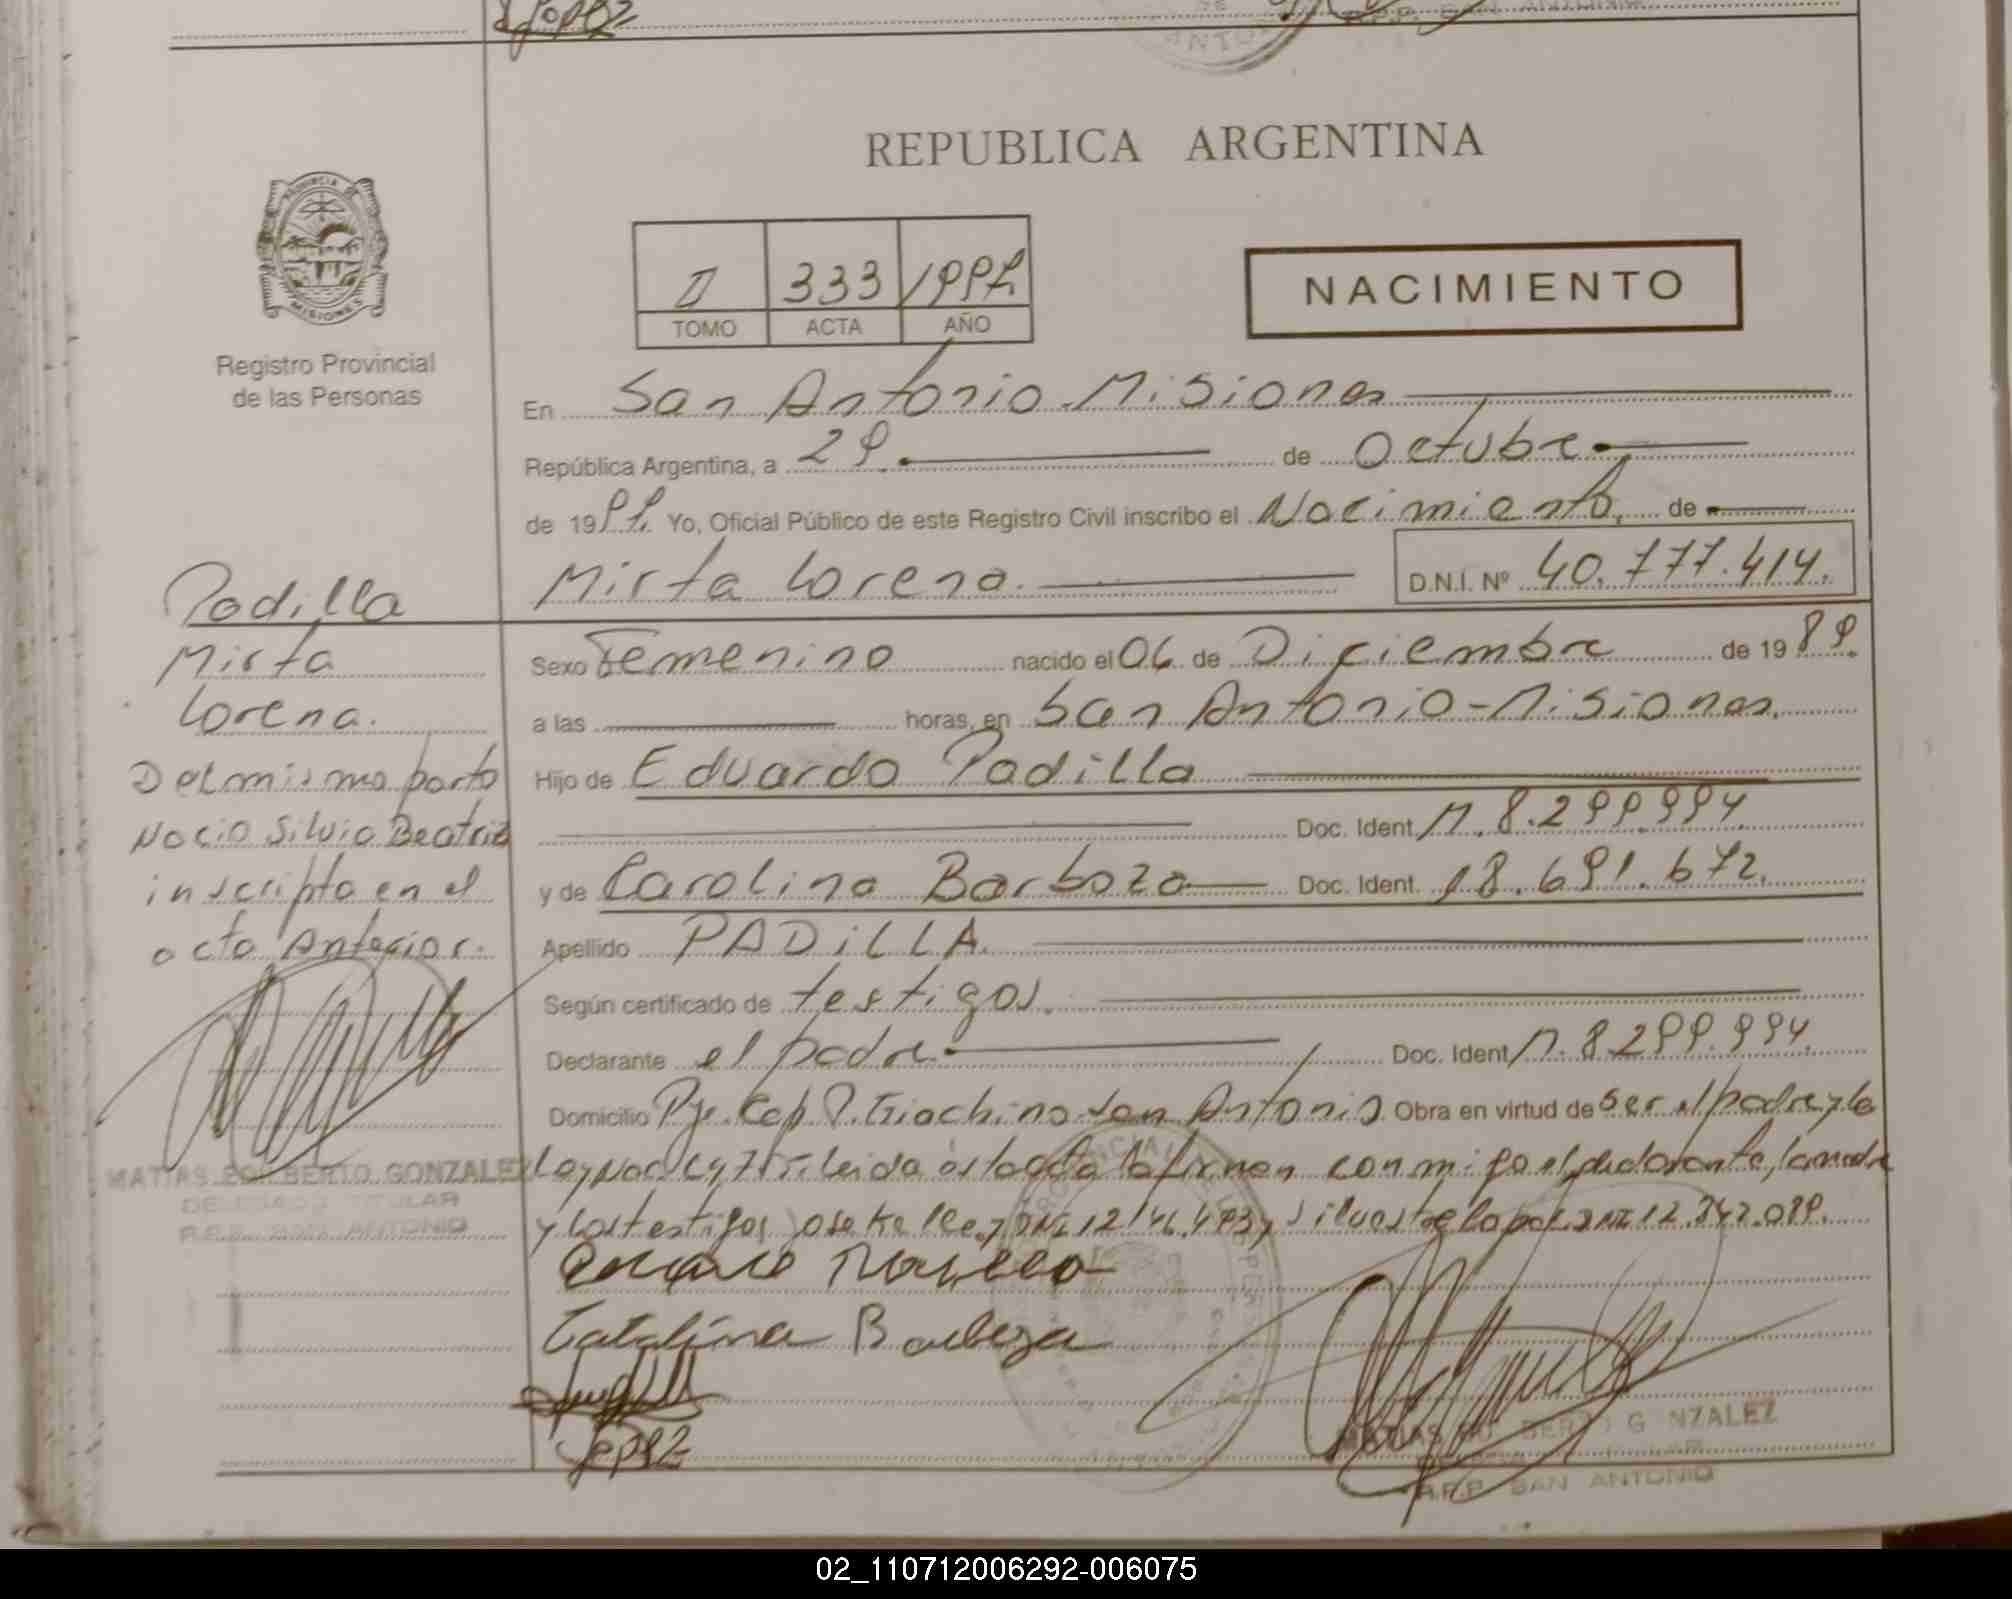 Lopez
R.P.P. SAN ANTONIO
REPUBLICA ARGENTINA
PROVINCIA DE
MISIONES
Registro Provincial
de las Personas
II 333 1997
TOMO ACTA AÑO
NACIMIENTO
En San Antonio. Misiones
República Argentina, a 29. de Octubre
de 1997. Yo, Oficial Público de este Registro Civil inscribo el Nacimiento, de
Mirta Lorena. D.N.I. Nº 40.777.414.
Padilla
Mirta
Lorena.
Del mismo parto
Nacio Silvia Beatriz
inscripta en el
acta Anterior.
MATIAS ROBERTO GONZALEZ
DELEGADO TITULAR
R.P.P. SAN ANTONIO
Sexo Femenino nacido el 06 de Diciembre de 1989.
a las horas, en San Antonio - Misiones.
Hijo de Eduardo Padilla
Doc. Ident M. 8.299.994.
y de Carolina Barboza Doc. Ident. 18.691.672.
Apellido PADiLLA.
Según certificado de testigos.
Declarante el padre Doc. Ident M. 8.299.994.
Domicilio Pje. Cap. P. Giachino San Antonio Obra en virtud de Ser el padre y la
Ley Nac. Leida esta acta la firman conmigo el declarante, la madre
y los testigos Jose Kelle DNI 12.146.493 y Silvestre Lopez DNI 12.242.089.
Catalina Barboza
Lopez
MATIAS ROBERTO GONZALEZ
R.P.P. SAN ANTONIO
02_110712006292-006075